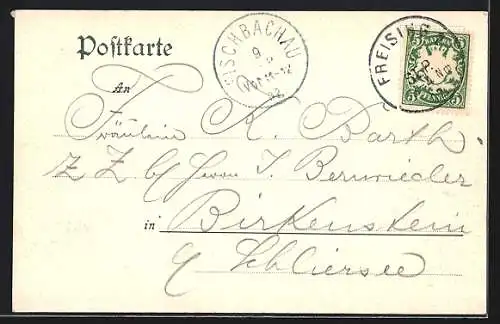 Postkarte
FISCHBACHAU
9
VOR 11-12
02
FREISING
BAYERN
5 5
PFENNIG
An
Fräulein K. Barth
z Z b/ Herrn J. Bernwieder
in Birkenstein
b/ Schliersee